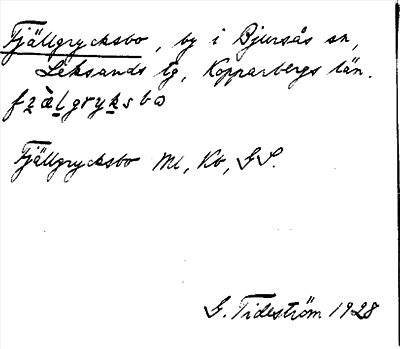 Fjällgrycksbo, by i Bjursås sn,
Leksands tg, Kopparbergs län.
fzàlgryksbo
Fjällgrycksbo Ml, Kb, GS.
G. Tideström 1928